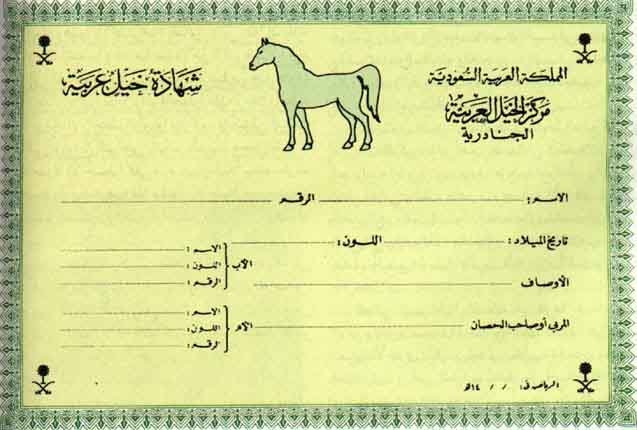 المملكة العربية السعودية
مركز الخيل العربية
الجنادرية
شهادة خيل عربية
الاسم: الرقم
تاريخ الميلاد: اللون:
الأوصاف
المربي أو صاحب الحصان
الأب
الاسم:
اللون:
الرقم:
الأم
الاسم:
اللون:
الرقم:
الرياض في / / ١٤هـ